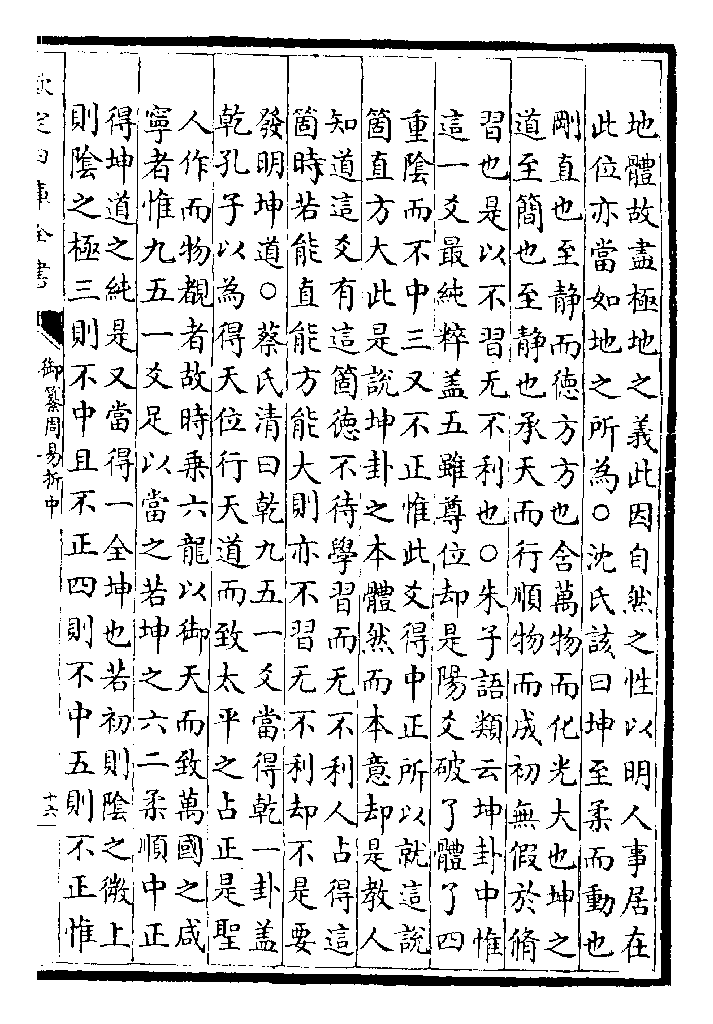 地體故盡極地之義此因自然之性以明人事居在
此位亦當如地之所為○沈氏該曰坤至柔而動也
剛直也至静而德方方也含萬物而化光大也坤之
道至簡也至静也承天而行順物而成初無假於脩
習也是以不習无不利也○朱子語類云坤卦中惟
這一爻最純粹盖五雖尊位却是陽爻破了體了四
重陰而不中三又不正惟此爻得中正所以就這說
箇直方大此是說坤卦之本體然而本意却是教人
知道這爻有這箇德不待學習而无不利人占得這
箇時若能直能方能大則亦不習无不利却不是要
發明坤道○蔡氏清曰乾九五一爻當得乾一卦盖
乾孔子以為得天位行天道而致太平之占正是聖
人作而物覩者故時乗六龍以御天而致萬國之咸
寧者惟九五一爻足以當之若坤之六二柔順中正
得坤道之純是又當得一全坤也若初則陰之微上
則陰之極三則不中且不正四則不中五則不正惟
欽定四庫全書
御纂周易折中
十六